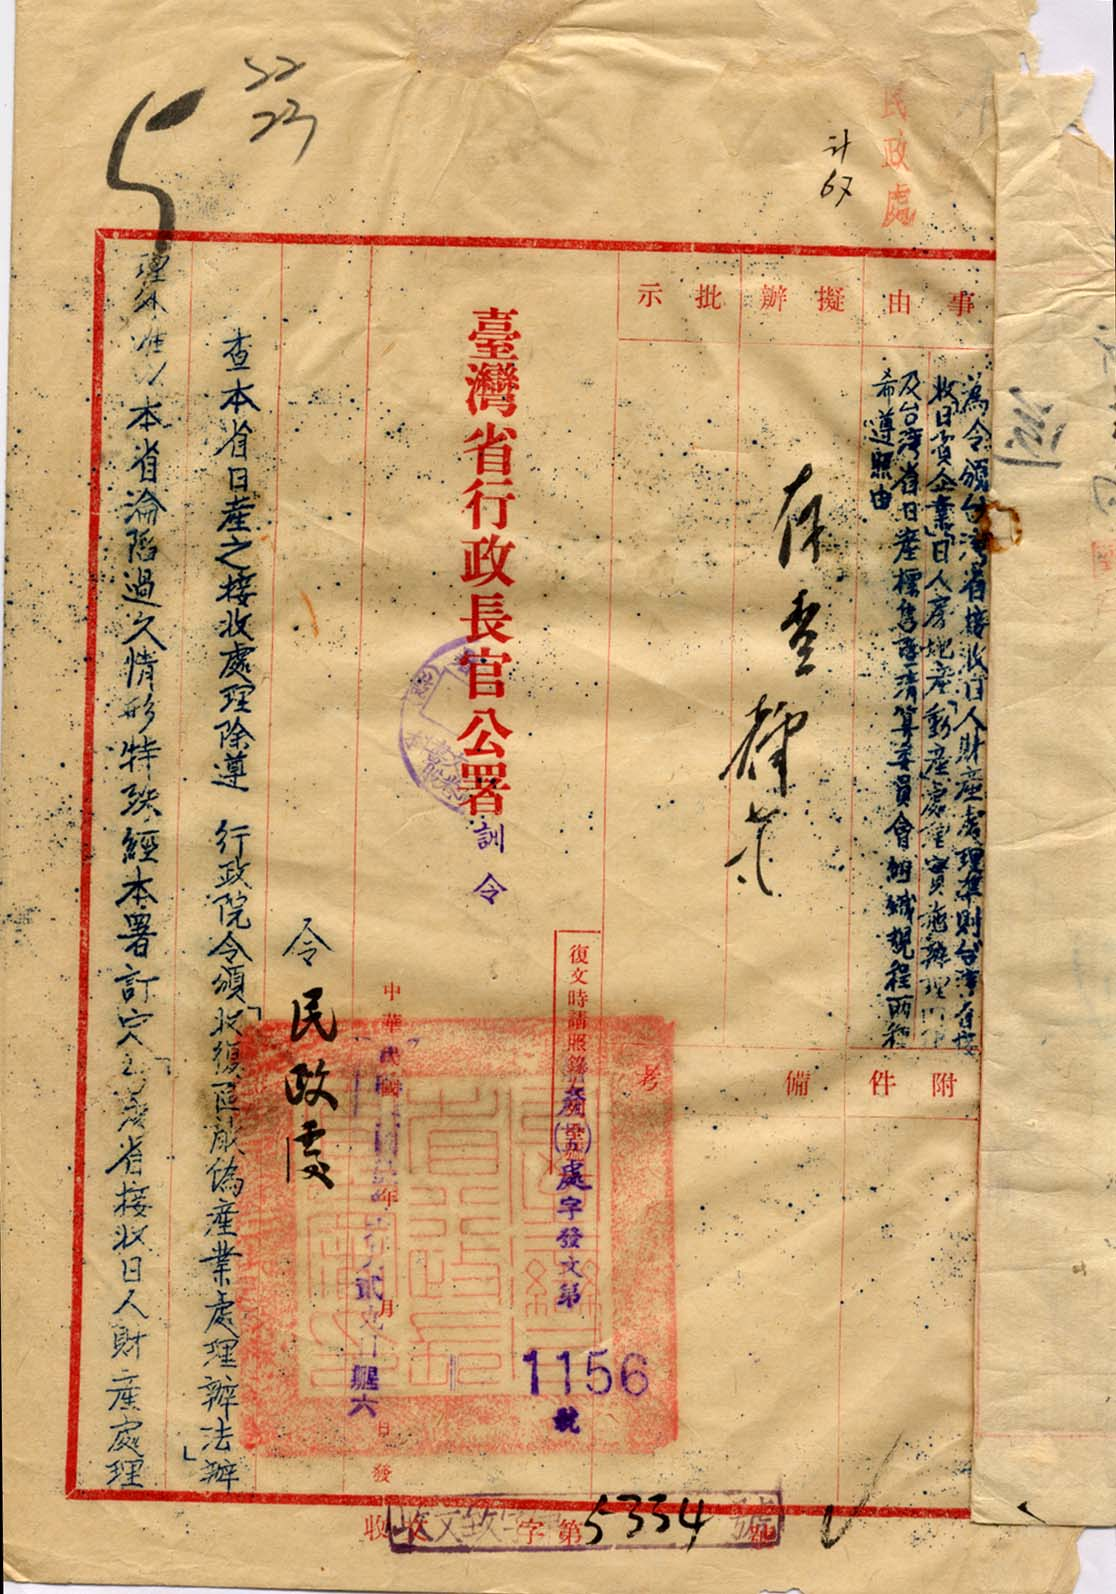 民政處
計
67
22
23
5
事由
擬辦
批示
為令頒台灣省接收日人財產處理準則台灣省接
收日資企業」日人房地產」動產處理實施辦理
及台灣省日產標售清算委員會組織規程
希遵照由
存查
附件
備考
臺灣省行政長官公署
訓令
復文時請照錄
處字發文第
1156
號
中華民國
年
月
日
發
令
民政處
查本省日產之接收處理除遵 行政院令頒「收復區敵偽產業處理辦法」辦
理外 本省淪陷過久情形特殊經本署訂定「台灣省接收日人財產處理
收文
字第5334號